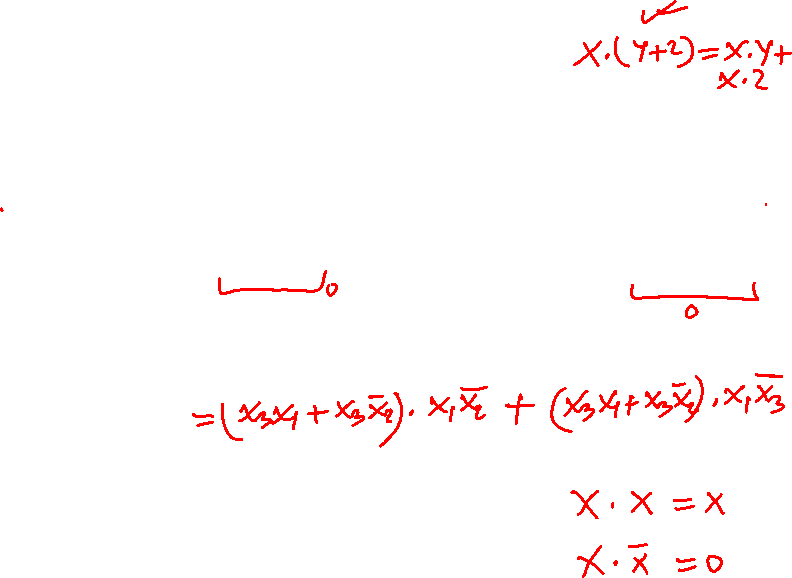 x·(y+z)=x·y+
x·z
0
0
=(x₃x₁+x₃x̅₂)·x₁x̅₂+(x₃x₁+x₃x̅₂)·x₁x̅₃
x·x=x
x·x̅=0